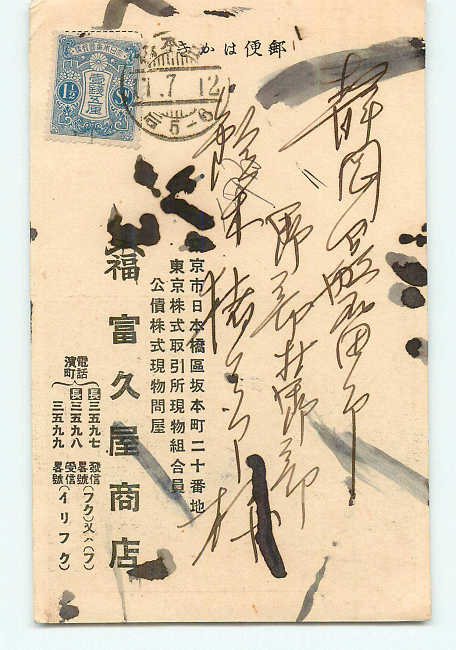 郵便はかき
静岡県磐田郡
野部村野部
様
京市日本橋區坂本町二十番地
東京株式取引所現物組合員
公債株式現物問屋
福富久屋商店
電話濱町
長三五九七
長三五九八
三五九九
發信畧號(フク)又ハ(フ)
受信畧號(イリフク)
壹錢五厘
1½
Sn
1.7 12
5-6